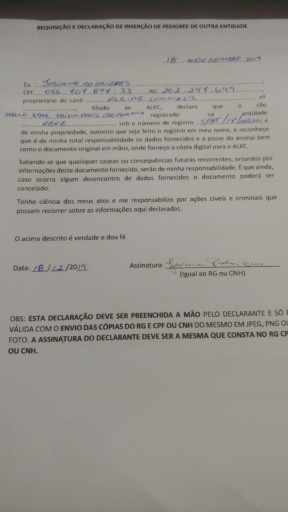 REQUISIÇÃO E DECLARAÇÃO DE INSERÇÃO DE PEDIGREE DE OUTRA ENTIDADE
18 DEZEMBRO 2019
Eu
CPF RG
proprietário do canil
filiado ao ALKC, declaro que o cão
registrado na entidade
sob o número de registro
de minha propriedade, autorizo que seja feito o registro em meu nome, e reconheço
que é de minha total responsabilidade os dados fornecidos e a posse do animal bem
como o documento original em mãos, onde forneço a cópia digital para o ALKC.
Sabendo-se que quaisquer causas ou consequências futuras recorrentes, oriundos por
informações deste documento fornecido, serão de minha responsabilidade. E que ainda,
caso ocorra algum desencontro de dados fornecidos o documento poderá ser
cancelado.
Tenho ciência dos meus atos e me responsabilizo por ações cíveis e criminais que
possam recorrer sobre as informações aqui declaradas.
O acima descrito é verdade e dou fé
Data: 18/12/2019 Assinatura:
(Igual ao RG ou CNH)
OBS: ESTA DECLARAÇÃO DEVE SER PREENCHIDA A MÃO PELO DECLARANTE E SÓ
VÁLIDA COM O ENVIO DAS CÓPIAS DO RG E CPF OU CNH DO MESMO EM JPEG, PNG OU
FOTO. A ASSINATURA DO DECLARANTE DEVE SER A MESMA QUE CONSTA NO RG
OU CNH.